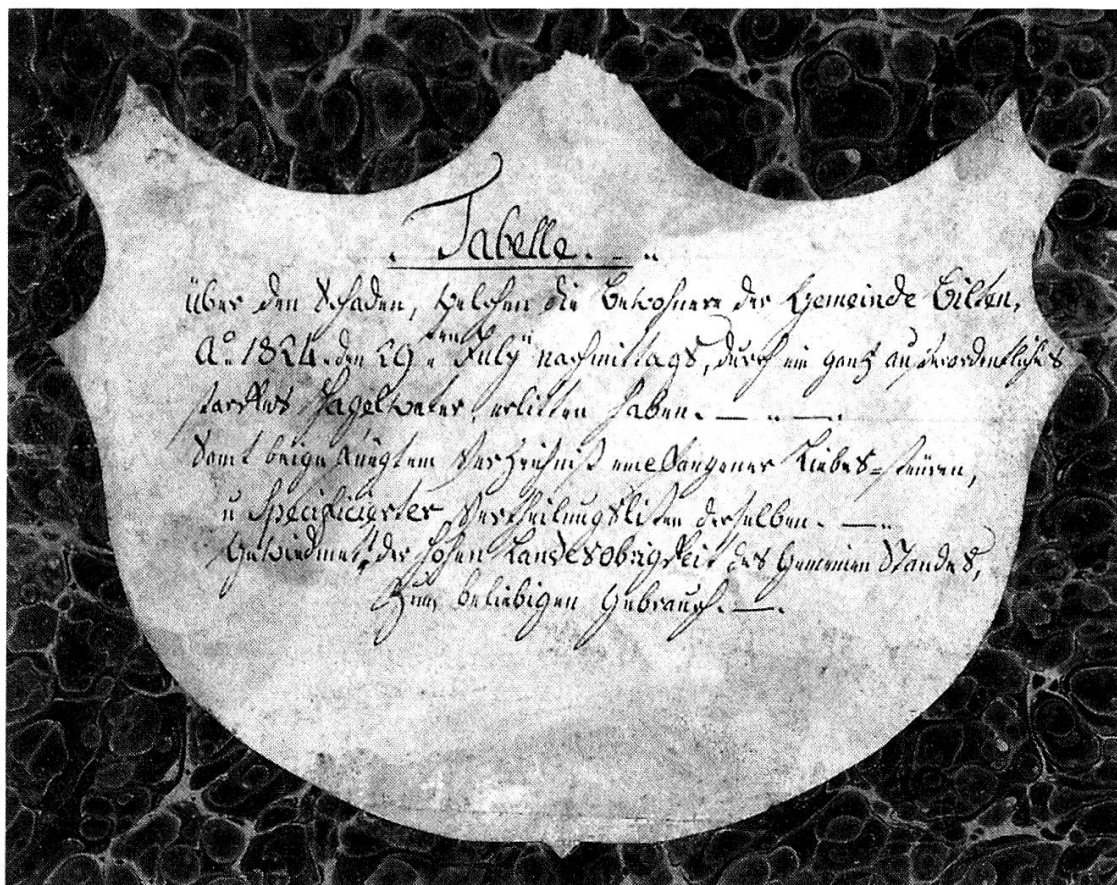 Tabelle. . ..
über den Schaden, welchen die Bewohnere der Gemeinde Bilten,
Aº. 1824. den 29ten July nachmittags, durch ein ganz außerordentliches
starkes Hagelweter, erlitten haben. — .. —..
Samt beigefüegtem Verzeichniß empfangener Liebes=steüren,
u Specificierter Vertheilungslisten derselben. —..
Gewiedmet, der hohen Landesobrigkeit des Gemeinen Standes,
Zum beliebigen Gebrauch. —.